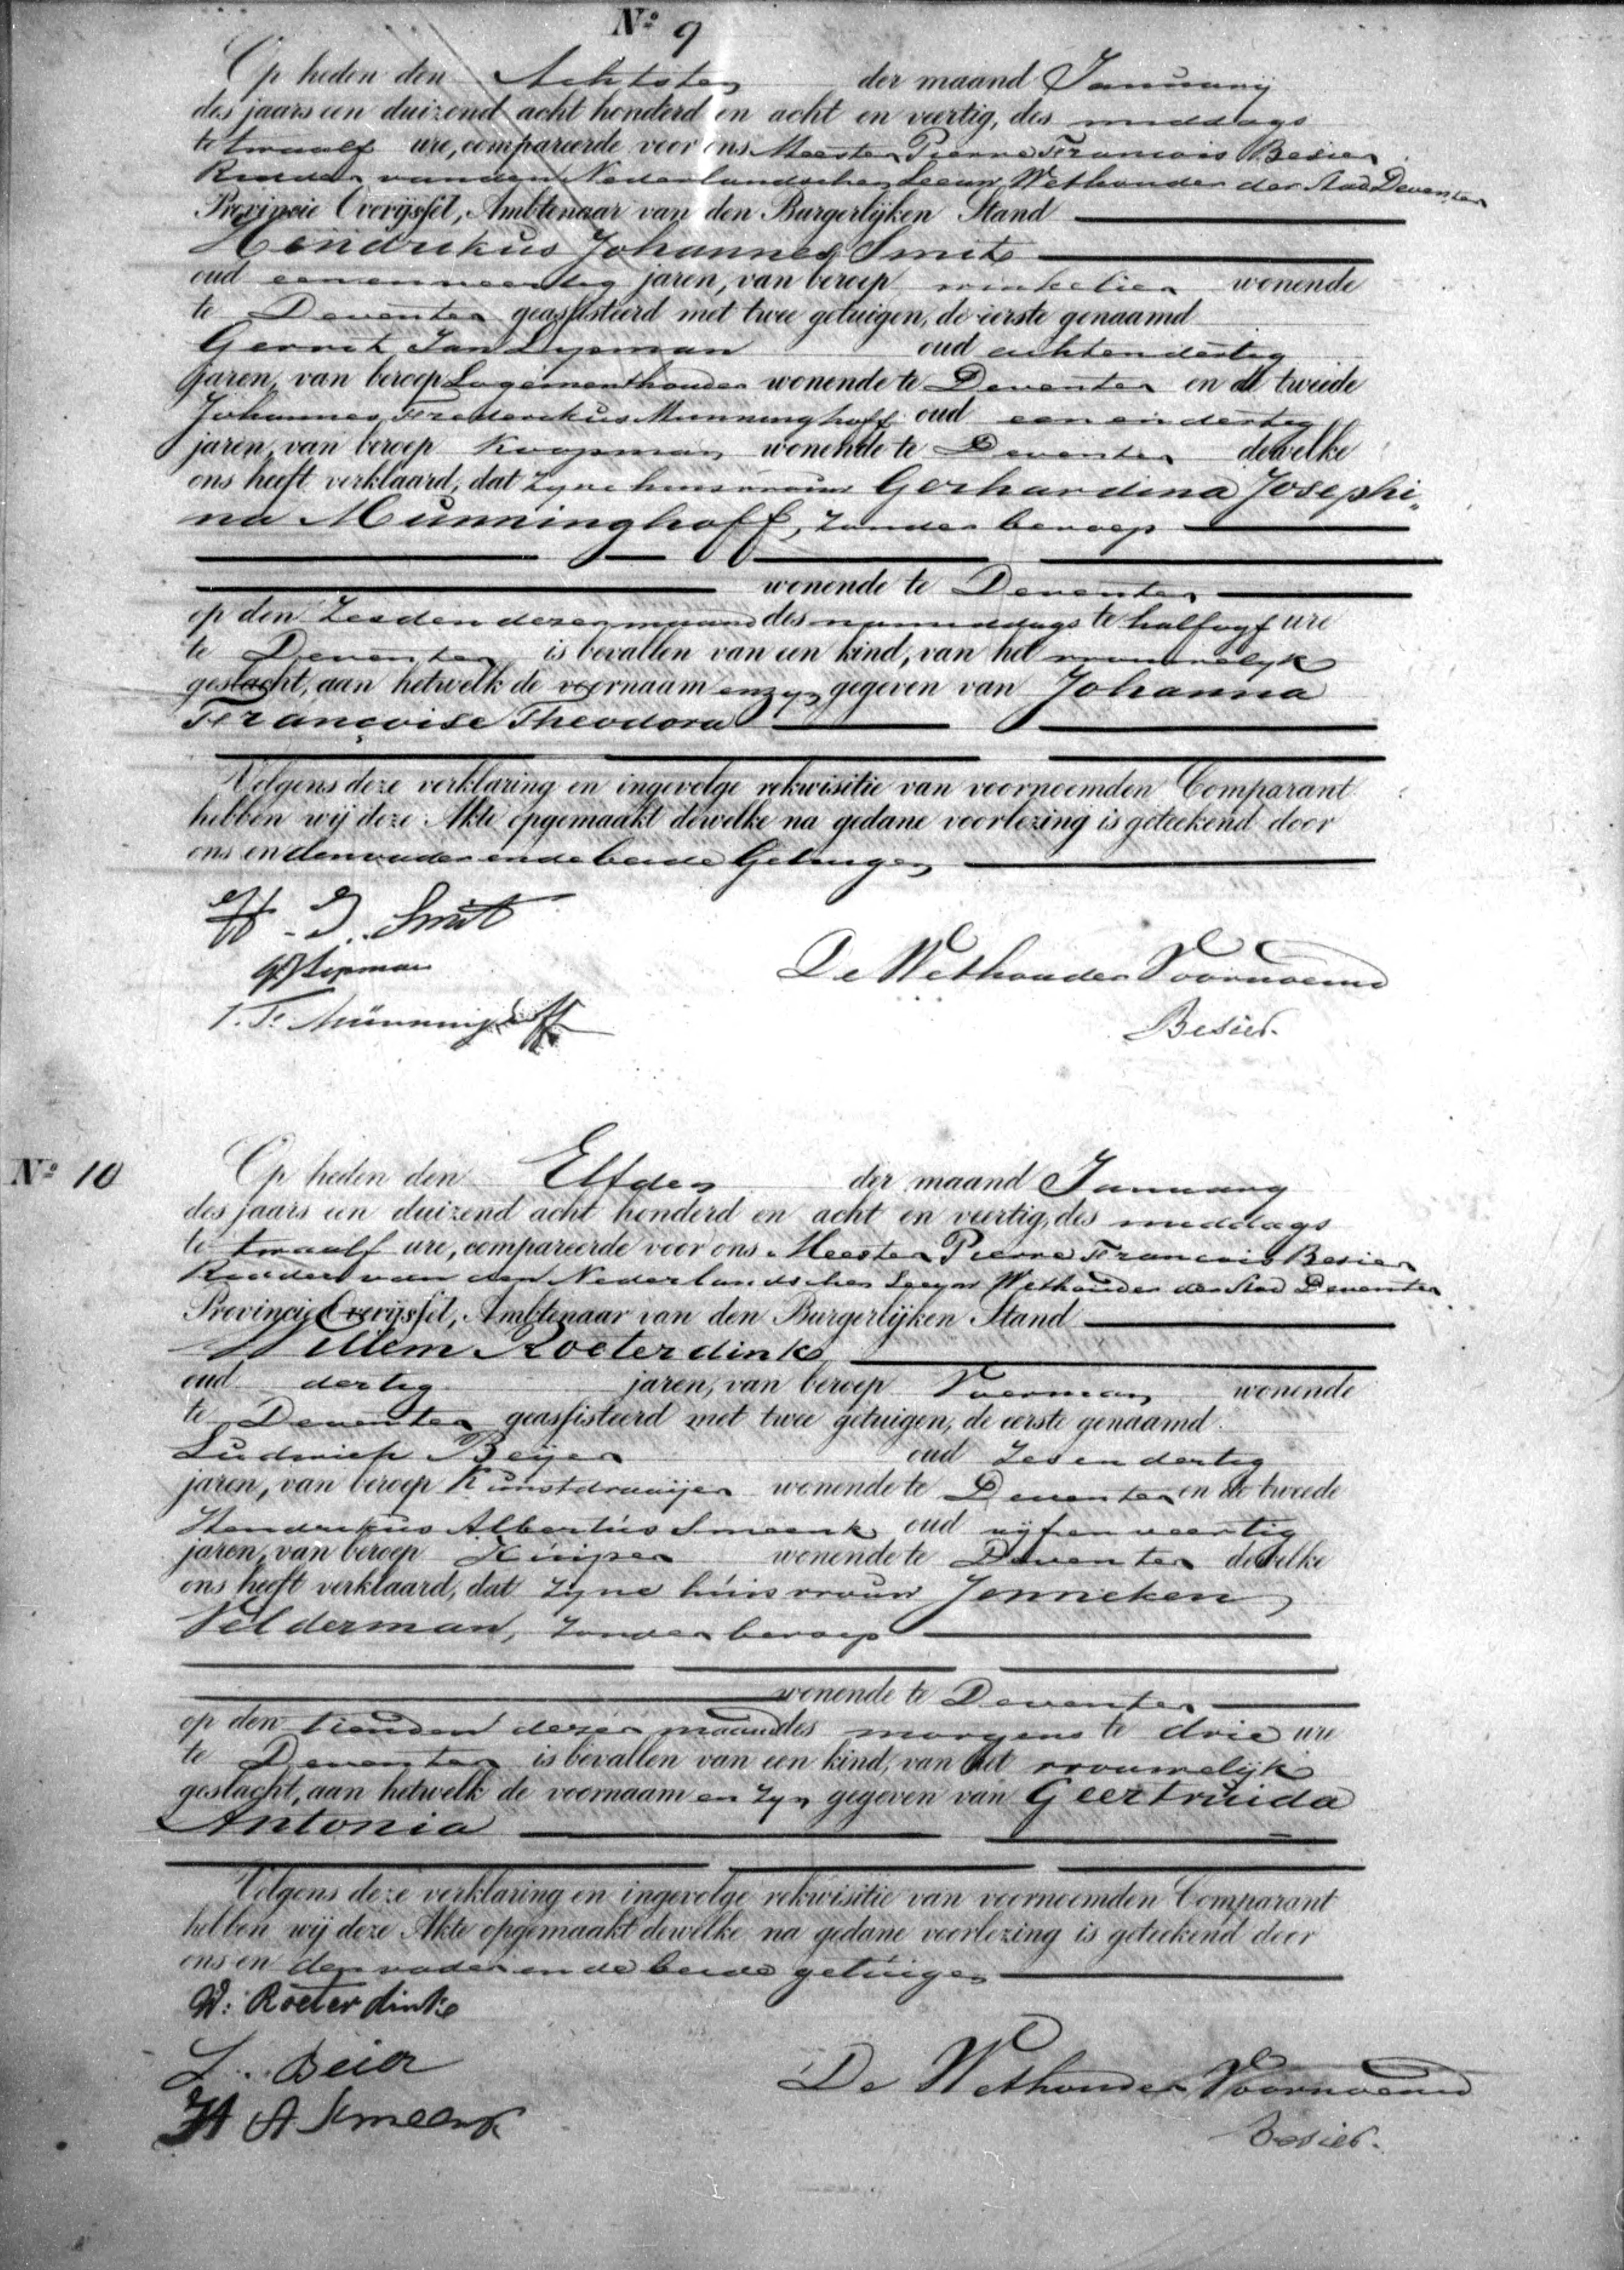 No 9
Op heden den Achtsten der maand Januarij
des jaars een duizend acht honderd en acht en veertig, des middags
te twaalf ure, compareerde voor ons Meester Pierre Francois Besier
Ridder van den Nederlandschen Leeuw, Wethouder der Stad Deventer
Provincie Overijssel, Ambtenaar van den Burgerlijken Stand
Hendrikus Johannes Smit
oud eenenveertig jaren, van beroep winkelier wonende
te Deventer geassisteerd met twee getuigen, de eerste genaamd
Gerrit Jan Lipman oud achtendertig
jaren, van beroep Logementhouder wonende te Deventer en de tweede
Johannes Frederikus Munninghoff oud eenendertig
jaren, van beroep Koopman wonende te Deventer dewelke
ons heeft verklaard, dat zyne huisvrouw Gerhardina Josephi„
na Munninghoff, zonder beroep
wonende te Deventer
op den zesden dezer maand des namiddags te half vyf ure
te Deventer is bevallen van een kind, van het vrouwelyk
geslacht, aan hetwelk de voornaam en zyn gegeven van Johanna
Françoise Theodora
Volgens deze verklaring en ingevolge rekwisitie van voornoemden Comparant
hebben wij deze Akte opgemaakt dewelke na gedane voorlezing is geteekend door
ons en den vader en de beide Getuigen
H. J. Smit
GJ Lipman
J. F. Münninghoff
De Wethouder Voornoemd
Besier.
No 10
Op heden den Elfden der maand January
des jaars een duizend acht honderd en acht en veertig, des middags
te twaalf ure, compareerde voor ons Meester Pierre Francois Besier
Ridder van den Nederlandschen Leeuw Wethouder der Stad Deventer
Provincie Overijssel, Ambtenaar van den Burgerlijken Stand
Willem Roeterdink
oud dertig jaren, van beroep Voerman wonende
te Deventer geassisteerd met twee getuigen, de eerste genaamd
Ludwich Beijer oud zesendertig
jaren, van beroep Kunstdraaijer wonende te Deventer en de tweede
Hendrikus Albertus Smeenk oud vijfenveertig
jaren, van beroep Kuiper wonende te Deventer dewelke
ons heeft verklaard, dat zyne huisvrouw Jenneken
Velderman, zonder beroep
wonende te Deventer
op den tienden dezer maand des morgens te drie ure
te Deventer is bevallen van een kind, van het vrouwelijk
geslacht, aan hetwelk de voornaam en zyn gegeven van Geertruida
Antonia
Volgens deze verklaring en ingevolge rekwisitie van voornoemden Comparant
hebben wij deze Akte opgemaakt dewelke na gedane voorlezing is geteekend door
ons en den vader en de beide getuigen
W: Roeterdink
L. Beier
H A Smeenk
De Wethouder Voornoemd
Besier.